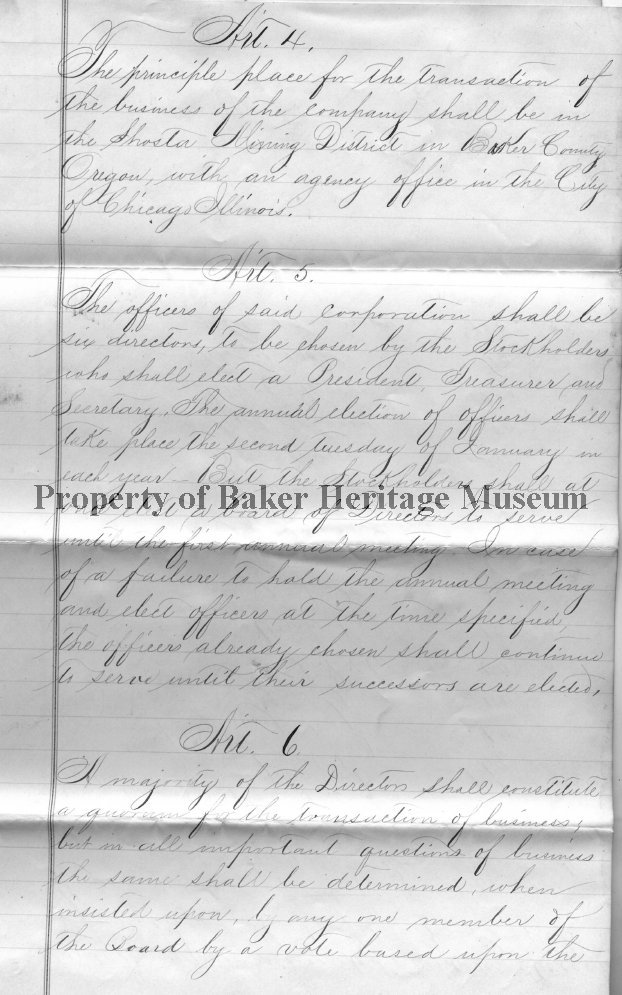 Art. 4.
The principle place for the transaction of
the business of the company shall be in
the Shasta Mining District in Baker County
Oregon, with an agency office in the City
of Chicago Illinois.
Art. 5.
The officers of said corporation shall be
six directors, to be chosen by the Stockholders,
who shall elect a President, Treasurer and
Secretary. The annual election of officers shall
take place the second tuesday of January in
each year – But the Stockholders shall at
Property of Baker Heritage Museum
elect a board of Directors to serve
until the first annual meeting. In case
of a failure to hold the annual meeting
and elect officers at the time specified,
the officers already chosen shall continue
to serve until their successors are elected.
Art. 6
A majority of the Directors shall constitute
a quorum for the transaction of business,
but in all important questions of business
the same shall be determined, when
insisted upon, by any one member of
the Board by a vote based upon the